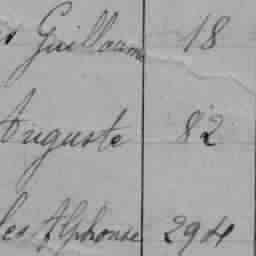 Guillaume 18
Auguste 82
les Alphonse 294